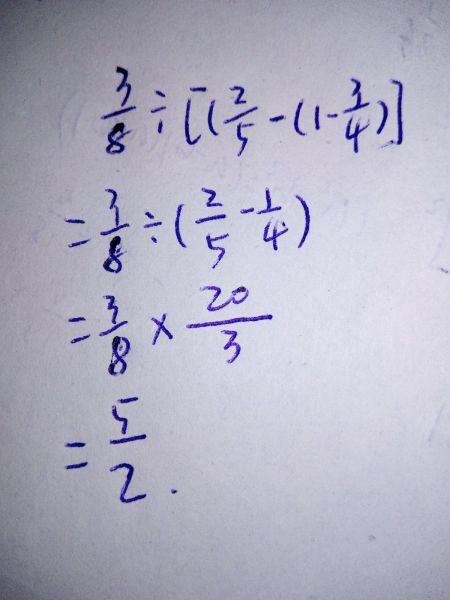 3/8 ÷ [(2/5 - (1 - 3/4)]
= 3/8 ÷ (2/5 - 1/4)
= 3/8 × 20/3
= 5/2.